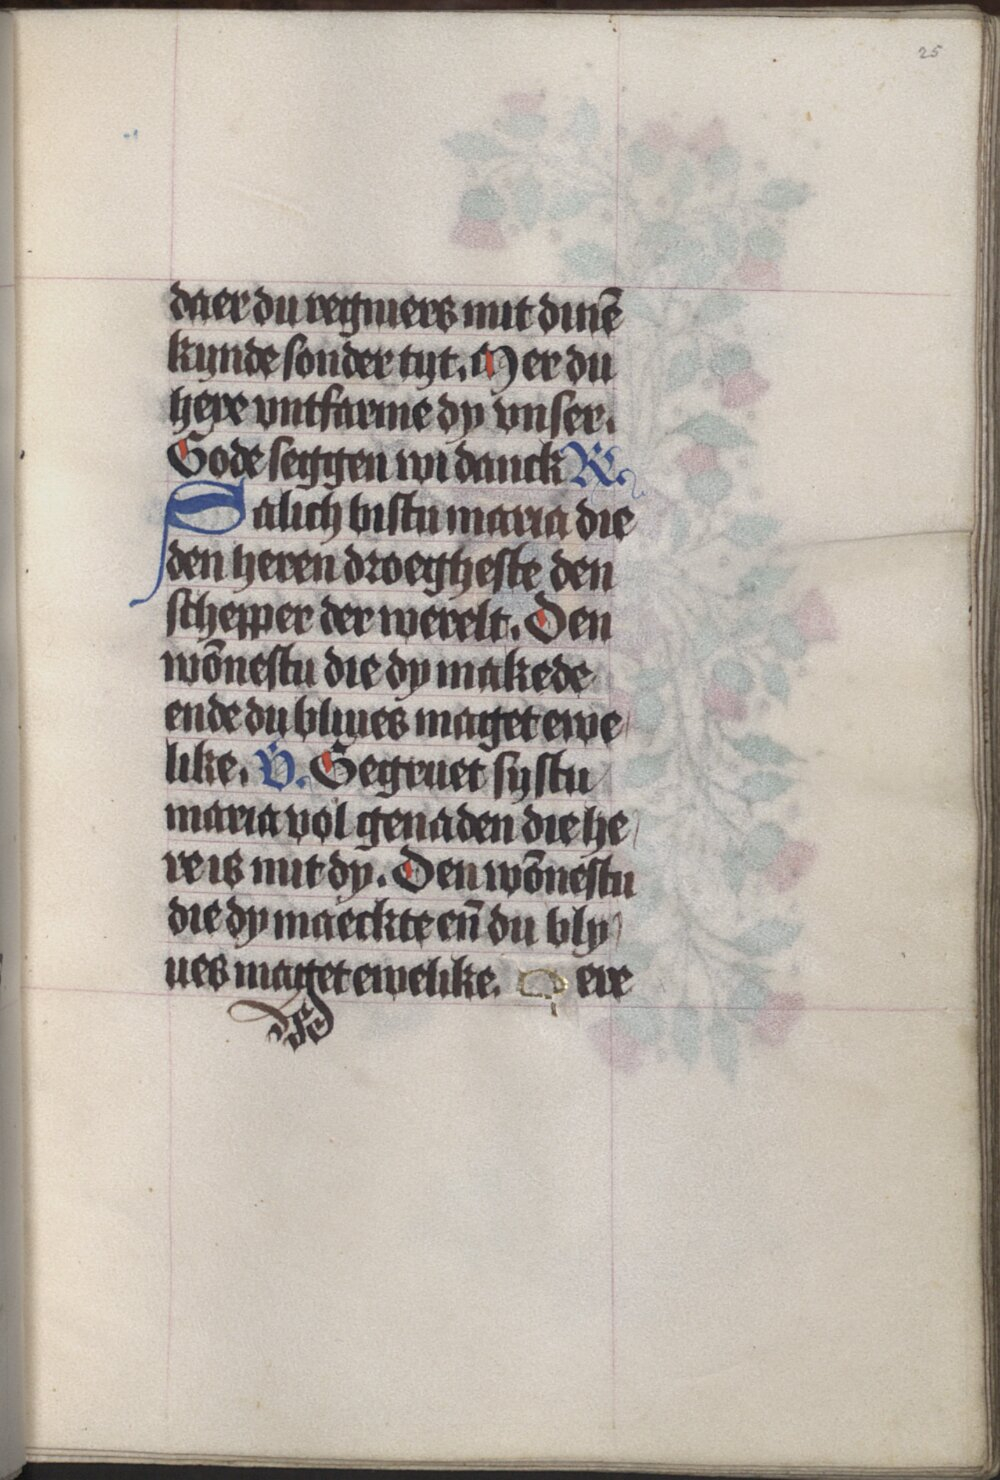 25
daer du regniers mit dinē
kynde sonder tyt. Mer du
here vntfarme dy vnser.
Gode seggen wi danck R.
Salich bistu maria die
den heren droegheste den
schepper der werelt. Den
wōnestu die dy makede
ende du bliues maget ewe
like. V. Gegruet systu
maria vol genaden die he
re is mit dy. Den wōnestu
die dy maeckte en̄ du bly
ues maget ewelike. ere